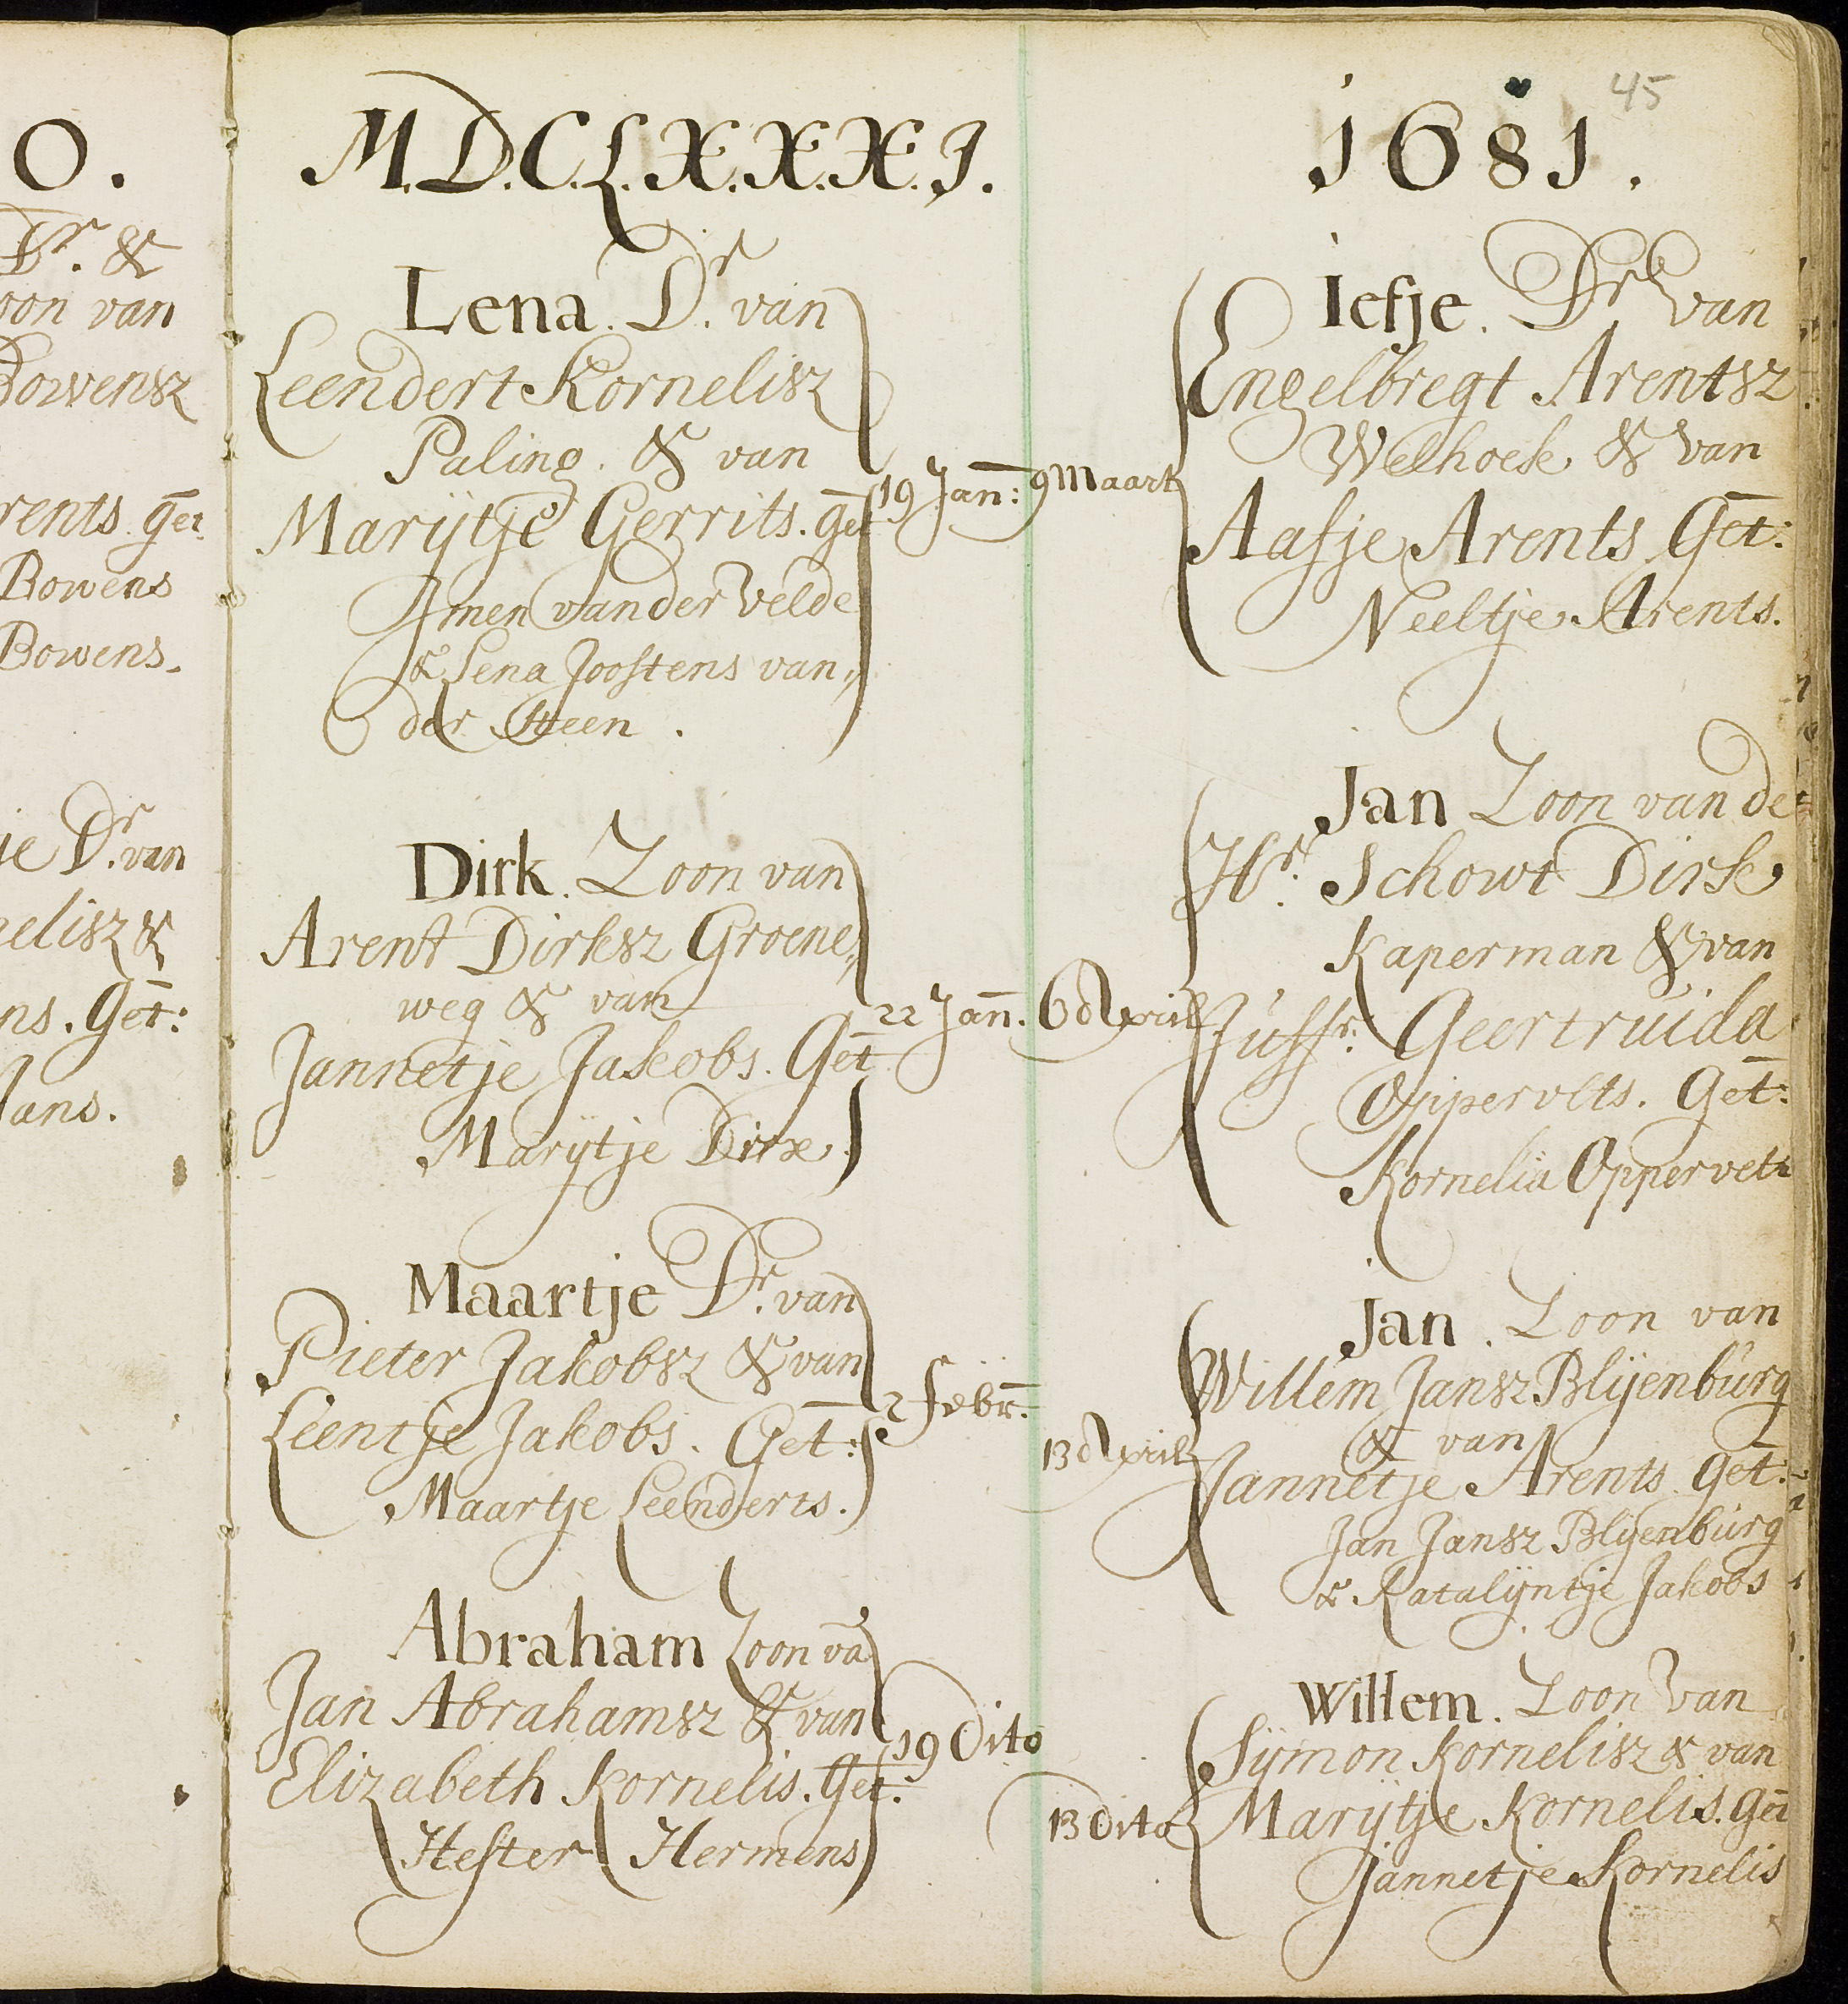 0.
Dr. &
oon van
Bowensz
rents. Get
Bowens
Bowens.
je Dr. van
nelisz &
ns. Get:
Jans.
M.D.C.L.X.X.X.I.
Lena. Dr. van
Leendert Kornelisz
Paling. & van
Marijtje Gerrits. Get
Imen vander Velde
& Lena Joostens van„
der Steen.
19 Jan:
Dirk. Zoon van
Arent Dirksz Groene„
weg & van
Jannetje Jakobs. Get
Marijtje Dirx.
22 Jan.
Maartje Dr. van
Pieter Jakobsz & van
Leentje Jakobs. Get:
Maartje Leenderts.
2 febr.
Abraham Zoon va
Jan Abrahamsz & van
Elizabeth Kornelis. Get:
Hester Hermens
19 Dito
45
1681.
Iefje. Dr van
Engelbregt Arentsz
Welhoek & van
Aafje Arents Get:
Neeltje Arents.
9 Maart
Jan Zoon van de
Hr. Schowt Dirk
Kaperman & van
Juffr. Geertruida
Oppervelts. Get:
Kornelia Oppervelts
6 April
Jan. Zoon van
Willem Jansz Blijenburg
& van
Jannetje Arents Get:
Jan Jansz Blijenburg
& Katalijntje Jakobs
13 April
Willem. Zoon van
Sijmon Kornelisz & van
Marijtje Kornelis. Get
Jannetje Kornelis
13 Dito